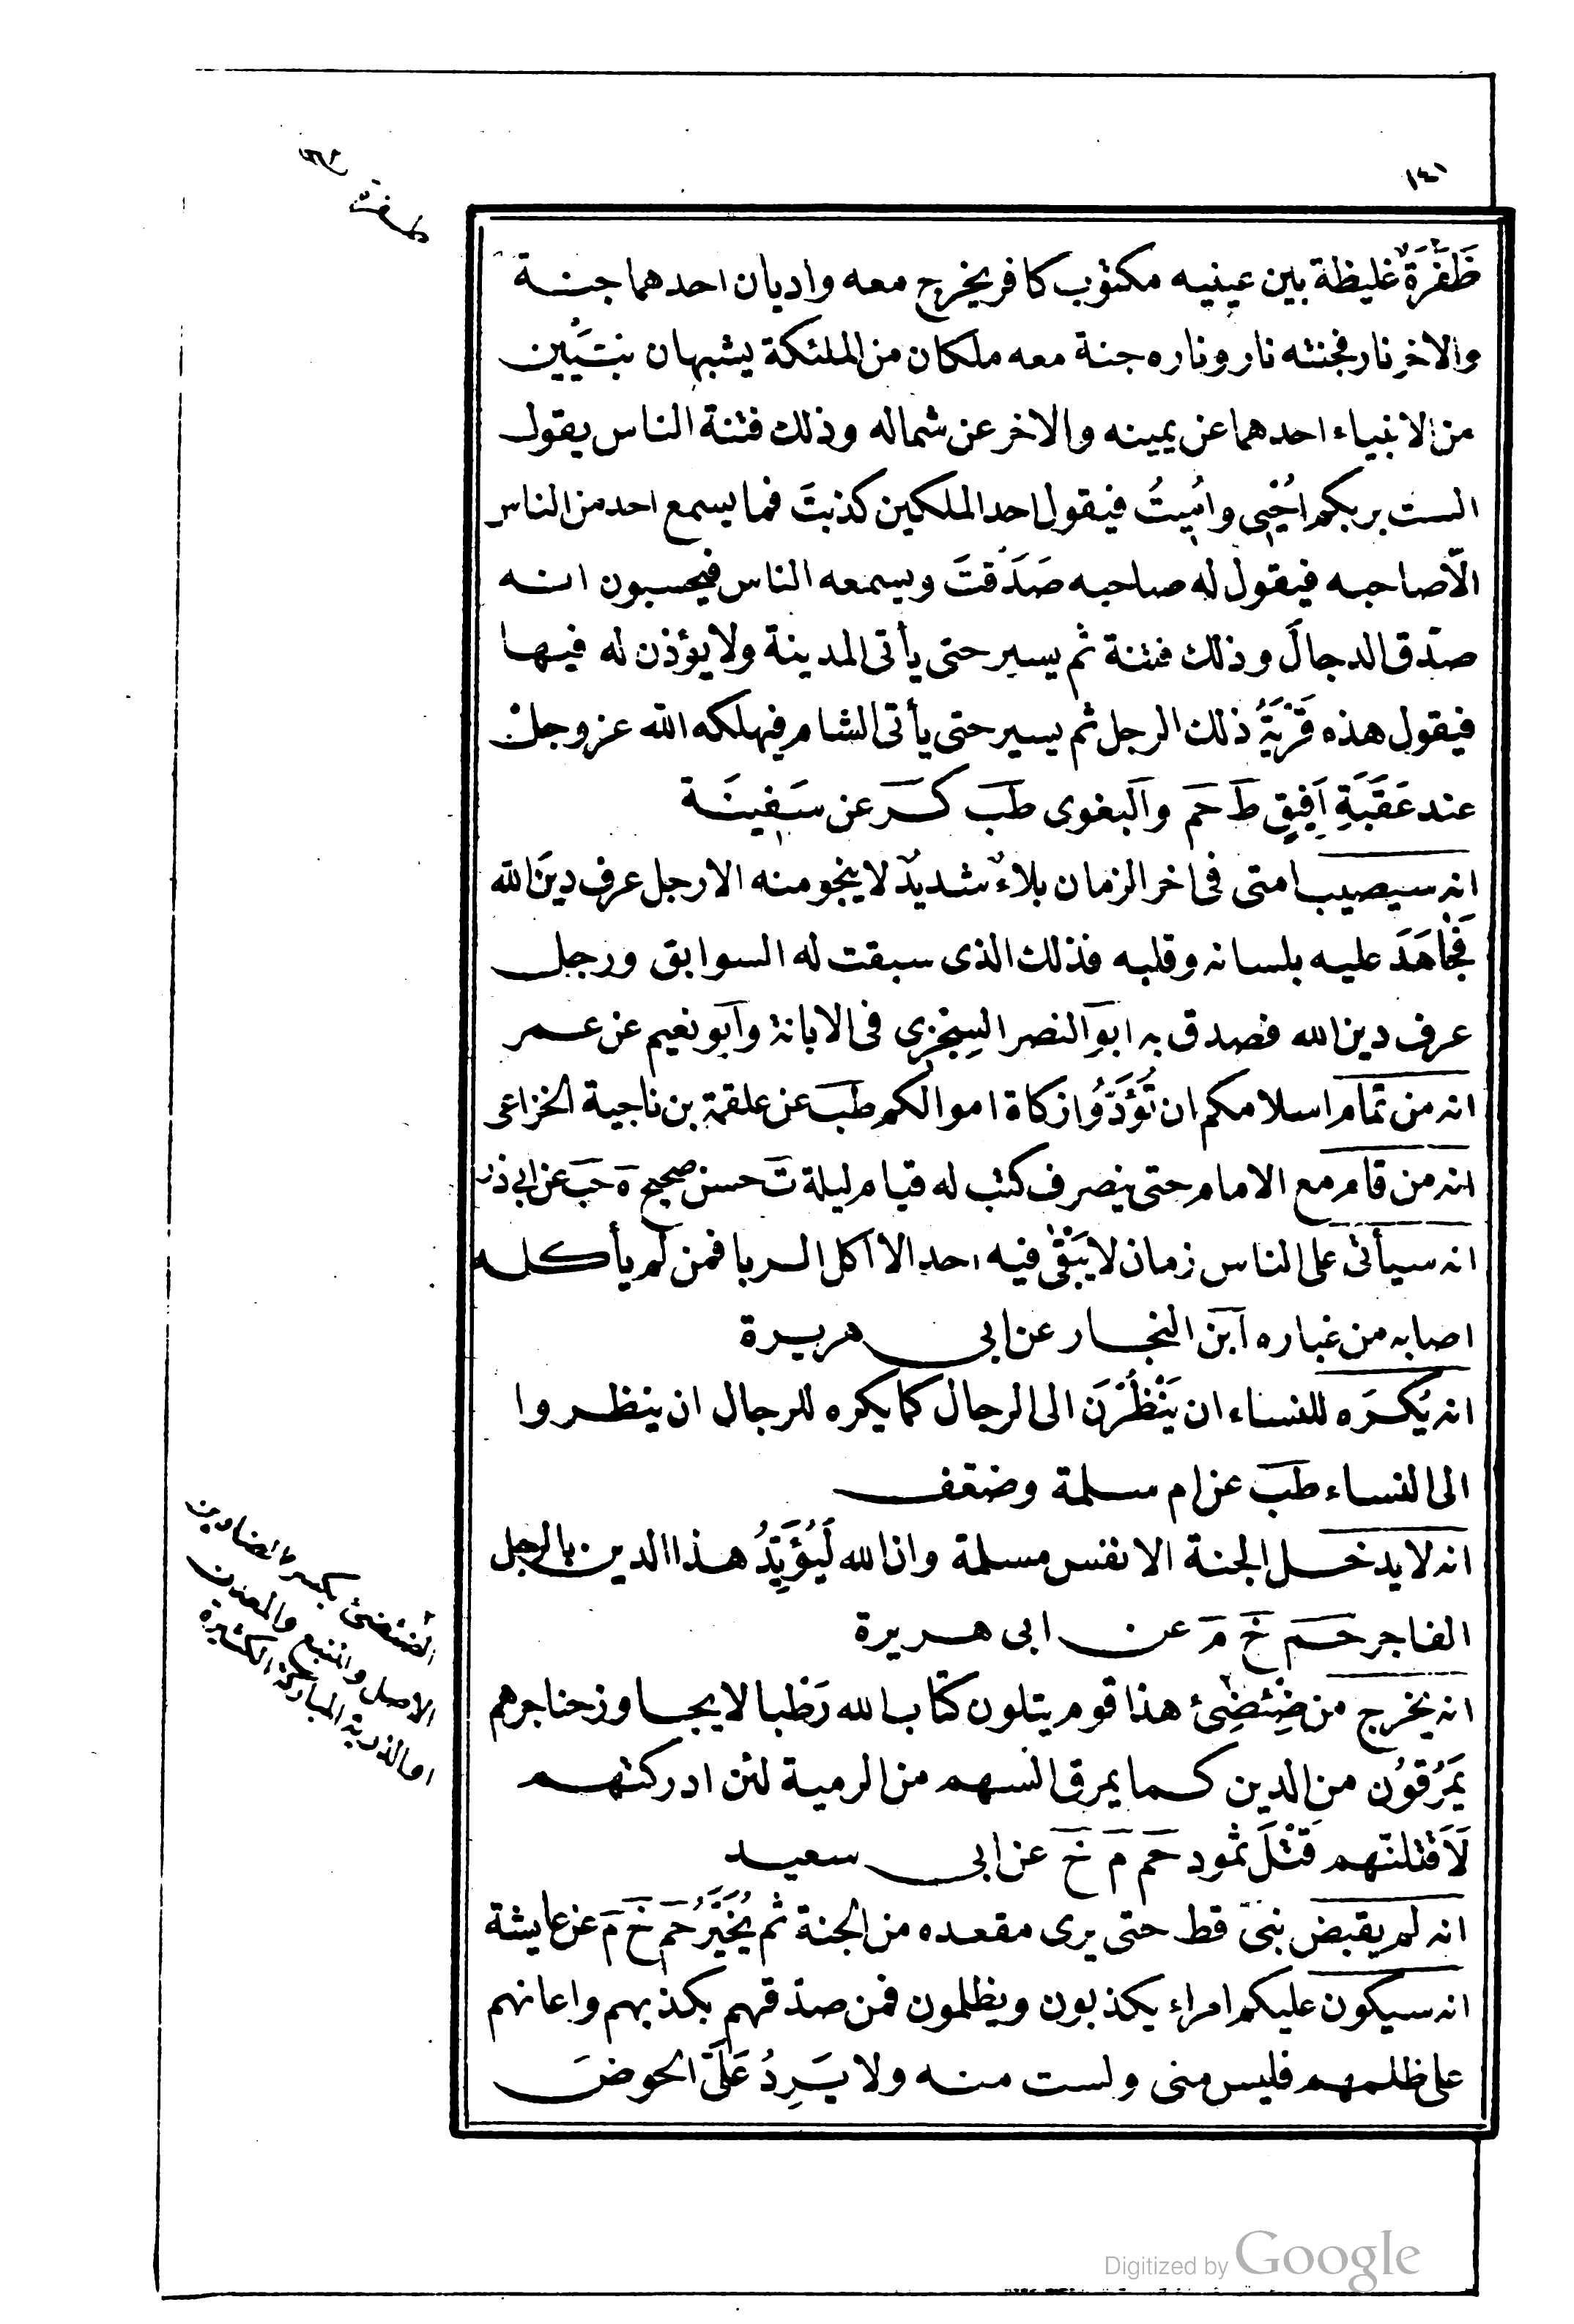 ١٤١
ظَفَرَةٌ غليظة بين عينيه مكتوب كافر يخرج معه واديان احدهما جنة
والاخر نار فجنته نار وناره جنة معه ملكان من الملئكة يشبهان نبيَّين
من الانبياء احدهما عن يمينه والاخر عن شماله وذلك فتنة الناس يقول
الست بربكم اُحْيِى واُمِيتُ فيقول احد الملكين كذبتَ فما يسمع احد من الناس
الّا صاحبه فيقول له صاحبه صَدَقتَ ويسمعه الناس فيحسبون انه
صدّق الدجالَ وذلك فتنة ثم يسير حتى يأتى المدينة ولا يؤذن له فيها
فيقول هذه قَرْيَةُ ذلك الرجل ثم يسير حتى يأتى الشام فيهلكه الله عز وجل
عند عَقَبَةِ اَفِيقٍ طَ حَم والبغوى طَب كَر عن سَفِينَة
انه سيصيب امتى فى اخر الزمان بلاءٌ شديدٌ لا ينجو منه الا رجل عرف دينَ الله
فَجَاهَدَ عليه بلسانه وقلبه فذلك الذى سبقت له السوابق ورجل
عرف دين الله فصدق به ابو النصر السِجْزِى فى الابانة وابو نعيم عن عمر
انه من تمام اسلامكم ان تُؤَدُّوا زكاة اموالكم طب عن علقمة بن ناجية الخزاعى
انه من قام مع الامام حتى ينصرف كتب له قيام ليلة تَ حسن صحيح ه حَب عن ابى ذر
انه سيأتى على الناس زمان لا يَبْقَى فيه احد الا اكل الربا فمن لم يأكله
اصابه من غباره ابن النجار عن ابى هريرة
انه يُكْرَه للنساء ان يَنْظُرْنَ الى الرجال كما يكره للرجال ان ينظروا
الى النساء طب عن ام سلمة وضعف
انه لا يدخل الجنة الا نفس مسلمة وان الله لَيُؤَيِّدُ هذا الدين بالرجل
الفاجر حَم خَ مَ عن ابى هريرة
انه يخرج من ضِئْضِئ هذا قوم يتلون كتاب الله رَطبا لا يجاوز حناجرهم
يَمْرُقُون من الدين كما يمرق السهم من الرمية لئن ادركتهم
لَاَقتلنّهم قَتْلَ ثمود حَم مَ خَ عن ابى سعيد
انه لم يقبض نبىّ قط حتى يرى مقعده من الجنة ثم يُخَيَّرُ حَم خَ مَ عن عايشة
انه سيكون عليكم امراء يكذبون ويظلمون فمن صدّقهم بكذبهم واعانهم
على ظلمهم فليس منى ولست منه ولا يَرِدُ عَلَىّ الحوضَ
الضئضئ بكسر الضادين
الاصل والمنبع والمعدن
او الذرية المباركة الكثيرة
Digitized by Google